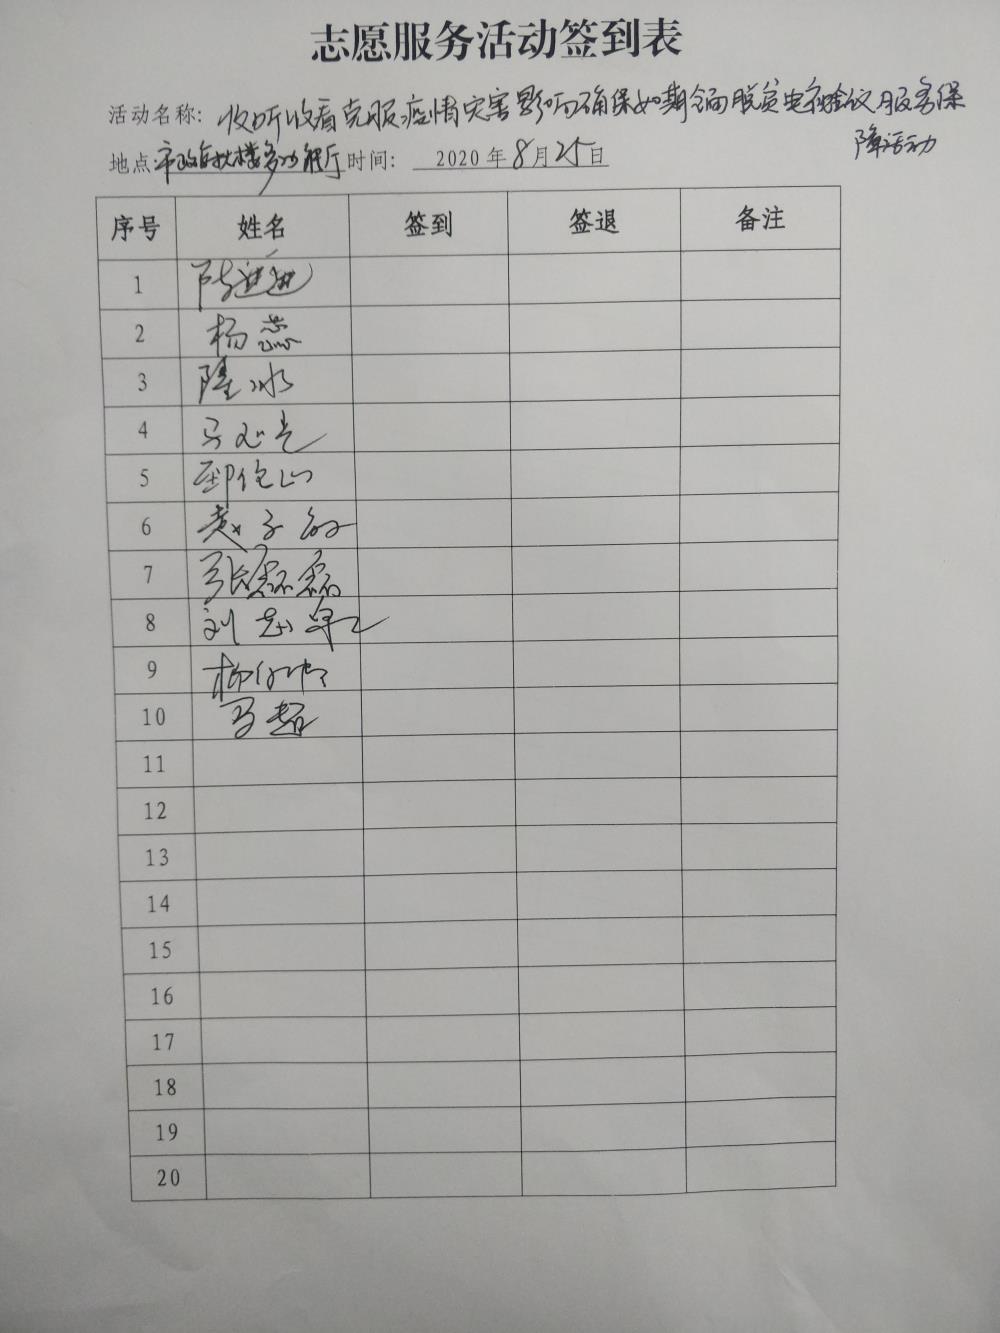 志愿服务活动签到表
活动名称: 收听收看克服疫情灾害影响确保如期全面脱贫电视会议服务保
障活动
地点 市政府北楼多功能厅 时间: 2020年8月25日
序号 姓名 签到 签退 备注
1
2 杨蕊
3 隆冰
4 马心光
5
6 袁子
7 张磊磊
8 刘志军
9 杨
10 马超
11
12
13
14
15
16
17
18
19
20